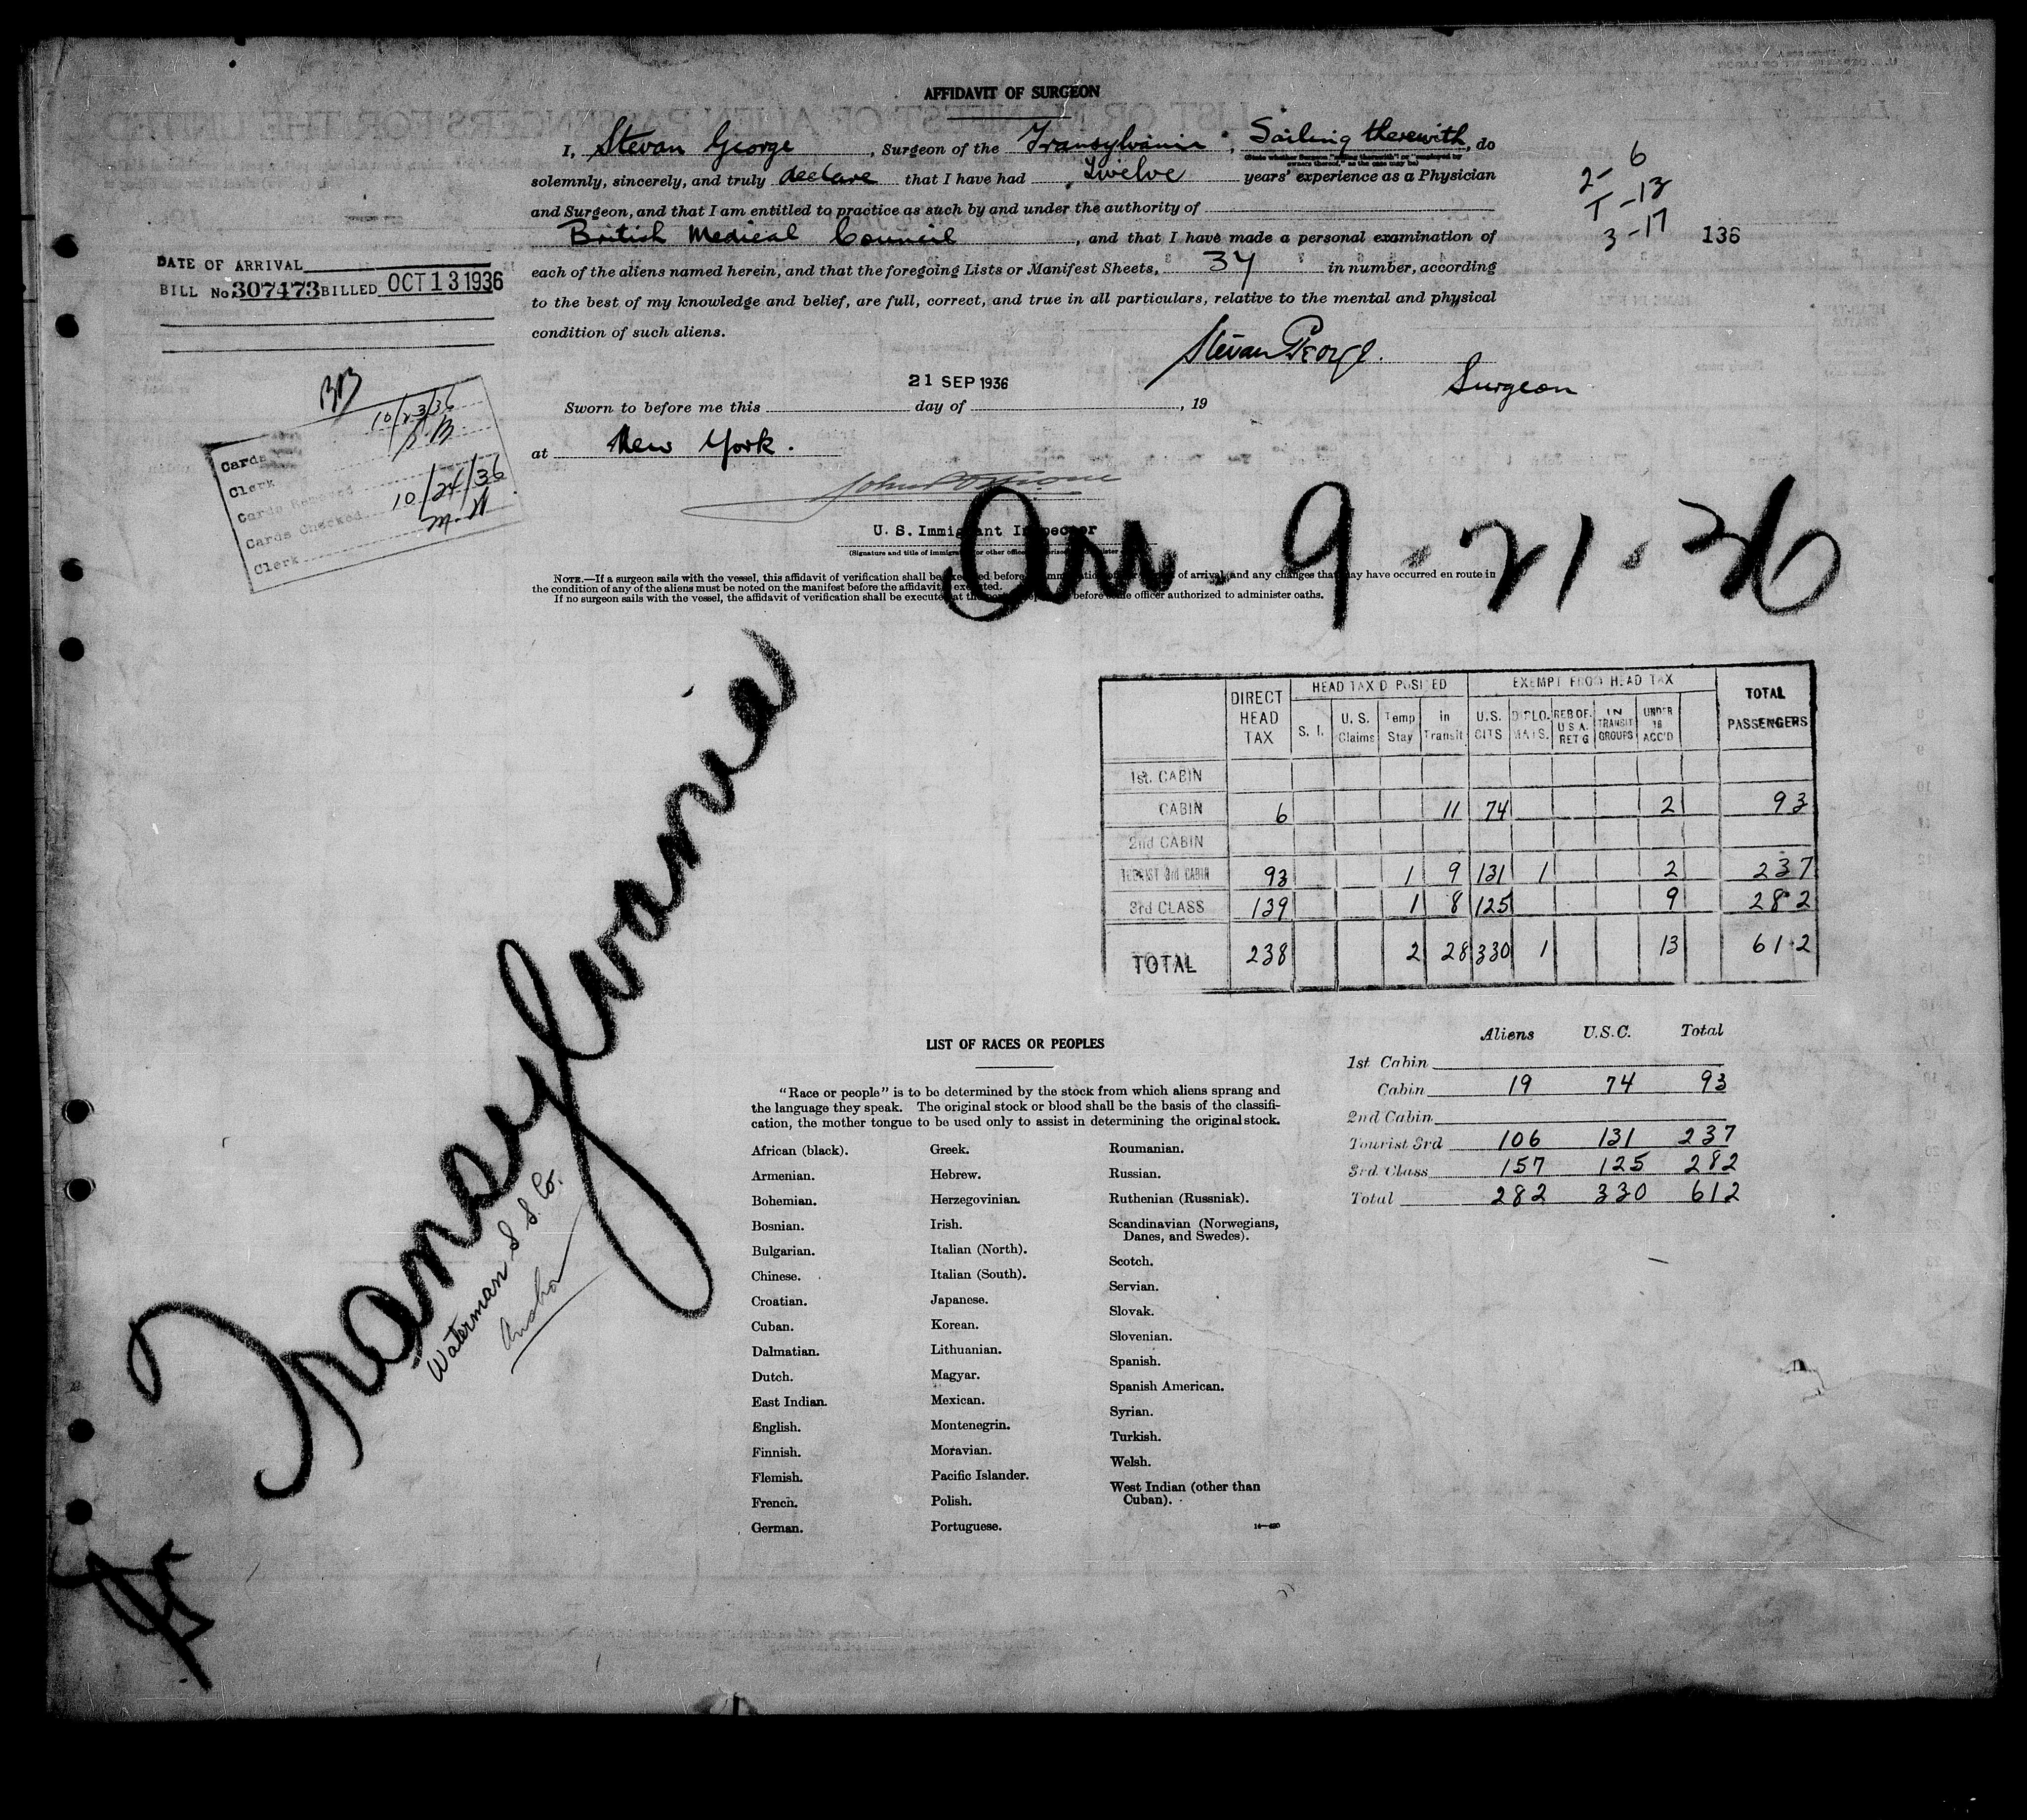 AFFIDAVIT OF SURGEON
I, Stevan George, Surgeon of the Transylvania, Sailing therewith, do
(State whether Surgeon "sailing therewith" or "employed by owners thereof," as the case may be)
solemnly, sincerely, and truly declare that I have had Twelve years' experience as a Physician
and Surgeon, and that I am entitled to practice as such by and under the authority of
British Medical Council, and that I have made a personal examination of
each of the aliens named herein, and that the foregoing Lists or Manifest Sheets, 34 in number, according
to the best of my knowledge and belief, are full, correct, and true in all particulars, relative to the mental and physical
condition of such aliens.
2- 6
T -13
3 -17
136
DATE OF ARRIVAL
BILL No. 307473 BILLED OCT 13 1936
Stevan George
Surgeon
21 SEP 1936
Sworn to before me this day of , 19
at New York.
U. S. Immigrant Inspector
Cards 10/23/36
Clerk
Cards Removed
Cards Checked 10/24/36
Clerk M.H
Arr. 9 - 21 - 36
NOTE.—If a surgeon sails with the vessel, this affidavit of verification shall be executed before of arrival, and any changes that may have occurred en route in
the condition of any of the aliens must be noted on the manifest before the affidavit is executed.
If no surgeon sails with the vessel, the affidavit of verification shall be executed at the before some officer authorized to administer oaths.
Transylvania
Waterman S. S. Co.
Anchor
DIRECT HEAD TAX HEAD TAX DEPOSITED EXEMPT FROM HEAD TAX TOTAL PASSENGERS
S. I. U. S. Claims Temp Stay in Transit U.S. CITS DIPLO. MATS. RES OF. U S A. RET G IN TRANSIT GROUPS UNDER 16 ACC'D
1st. CABIN
CABIN 6 11 74 2 93
2nd CABIN
TOURIST 3rd CABIN 93 1 9 131 1 2 237
3rd CLASS 139 1 8 125 9 282
TOTAL 238 2 28 330 1 13 612
Aliens U.S.C. Total
1st Cabin
Cabin 19 74 93
2nd Cabin
Tourist 3rd 106 131 237
3rd Class 157 125 282
Total 282 330 612
LIST OF RACES OR PEOPLES
"Race or people" is to be determined by the stock from which aliens sprang and
the language they speak. The original stock or blood shall be the basis of the classifi-
cation, the mother tongue to be used only to assist in determining the original stock.
African (black).
Armenian.
Bohemian.
Bosnian.
Bulgarian.
Chinese.
Croatian.
Cuban.
Dalmatian.
Dutch.
East Indian.
English.
Finnish.
Flemish.
French.
German.
Greek.
Hebrew.
Herzegovinian.
Irish.
Italian (North).
Italian (South).
Japanese.
Korean.
Lithuanian.
Magyar.
Mexican.
Montenegrin.
Moravian.
Pacific Islander.
Polish.
Portuguese.
Roumanian.
Russian.
Ruthenian (Russniak).
Scandinavian (Norwegians,
Danes, and Swedes).
Scotch.
Servian.
Slovak.
Slovenian.
Spanish.
Spanish American.
Syrian.
Turkish.
Welsh.
West Indian (other than
Cuban).